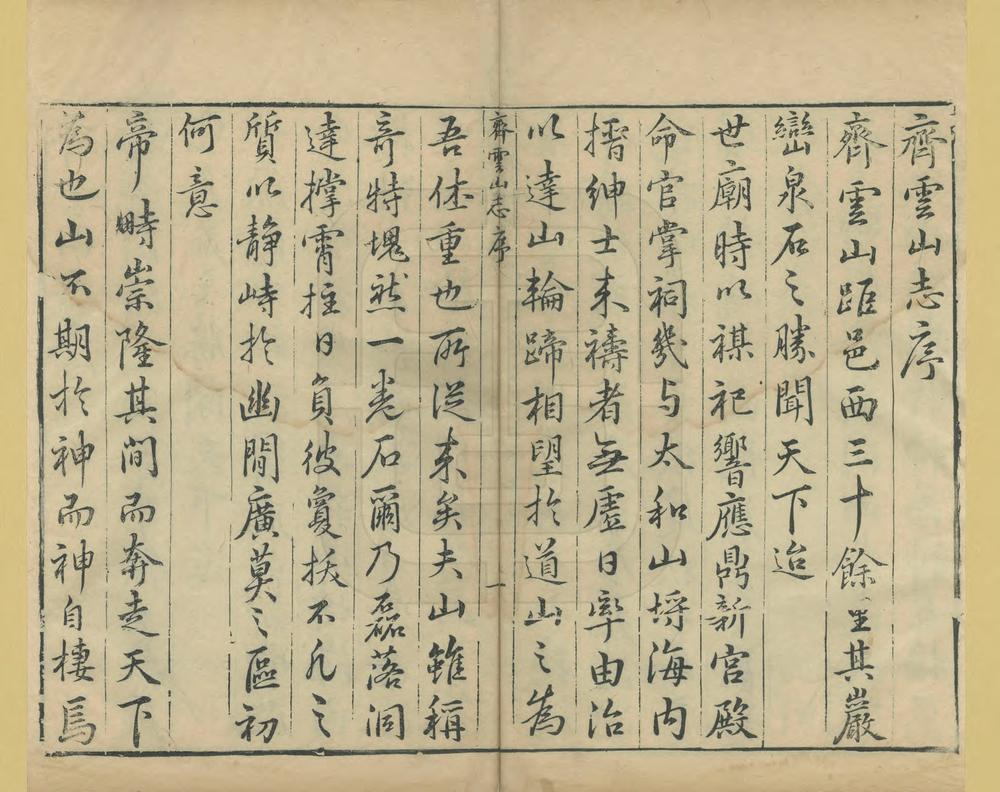 齊雲山志序
齊雲山距邑西三十餘里其巖
巒泉石之勝聞天下迨
世廟時以祺祀響應鼎新宮殿
命官掌祠幾与太和山埒海内
搢紳士来禱者無虛日率由治
以達山輪蹄相望於道山之為
齊雲山志序
一
吾休重也所従来矣夫山雖稱
竒特塊然一卷石爾乃磊落洞
達撑霄拄日負彼不凡之
質以静峙扵幽閒廣莫之區初
何意
帝畤崇隆其間而奔走天下
為也山不期扵神而神自棲焉